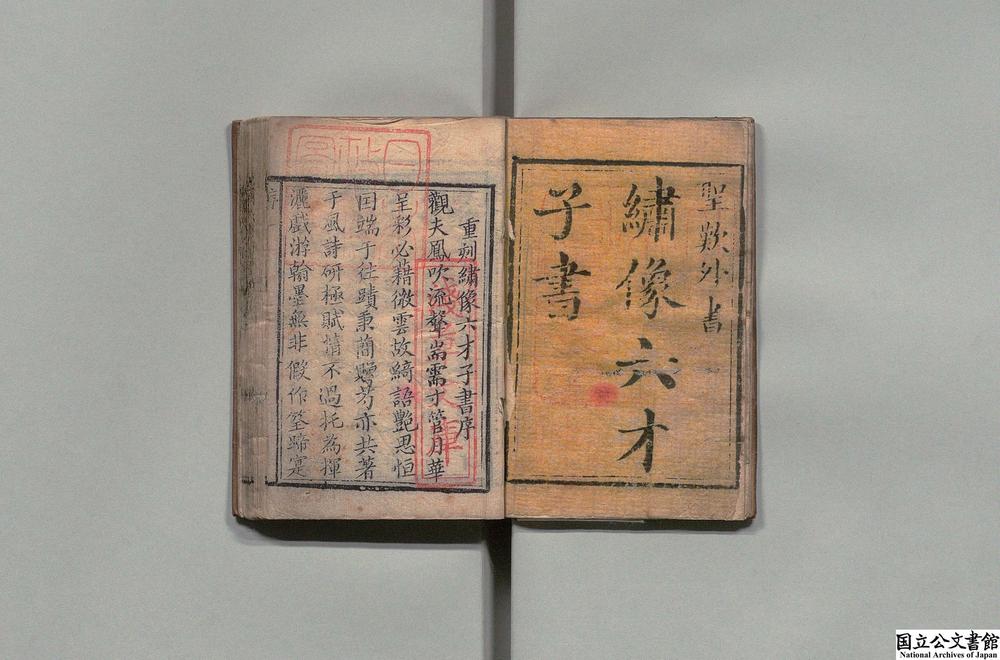 聖歎外書
繡像六才
子書
重刻繡像六才子書序
觀夫鳳吹流聲耑需寸管月華
呈彩必藉微雲故綺語艷思恒
因端于往蹟秉蕑贈芍亦共著
于風詩研極賦情不過托為揮
灑戲游翰墨無非假作筌蹄寔
序
国立公文書館
National Archives of Japan